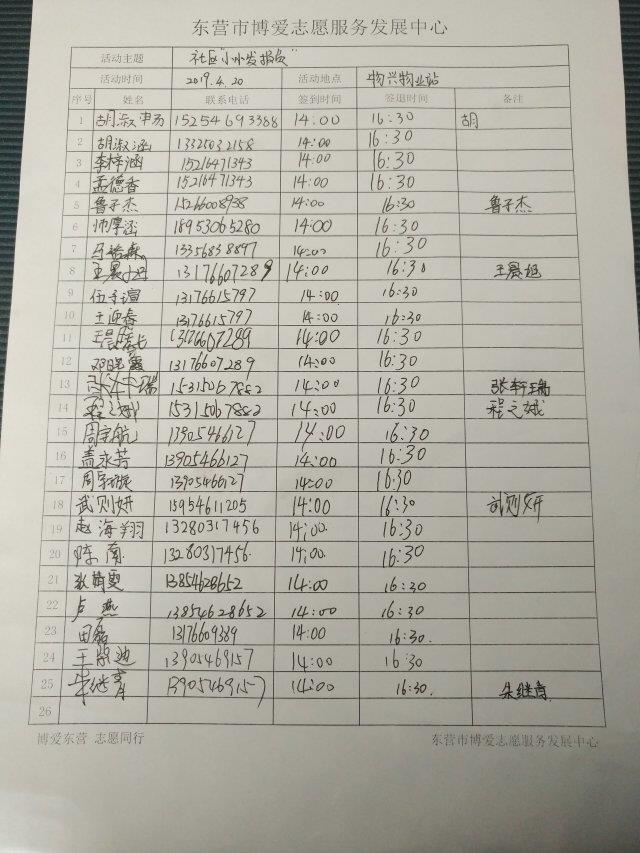 东营市博爱志愿服务发展中心
活动主题 社区"小小发报员"
活动时间 2019.4.20 活动地点 物兴物业站
序号 姓名 联系电话 签到时间 签退时间 备注
1 胡淑 15254693388 14:00 16:30 胡
2 胡淑涵 13325032158 14:00 16:30
3 李梓涵 15216471343 14:00 16:30
4 孟德香 15216471343 14:00 16:30
5 鲁子杰 15266008938 14:00 16:30 鲁子杰
6 帅厚涵 18953065280 14:00 16:30
7 13356838897 14:00 16:30
8 王晨旭 13176607289 14:00 16:30 王晨旭
9 伍子瑄 13176615797 14:00 16:30
10 王迎春 13176615797 14:00 16:30
11 13176607289 14:00 16:30
12 邓晓霞 13176607289 14:00 16:30
13 张轩瑞 15315067882 14:00 16:30 张轩瑞
14 程之斌 15315067882 14:00 16:30 程之斌
15 周宇航 13905466127 14:00 16:30
16 盖永芳 13905466127 14:00 16:30
17 周宇 13905466127 14:00 16:30
18 武则妍 15954611205 14:00 16:30 武则妍
19 赵海翔 13280317456 14:00. 16:30
20 陈南 13280317456. 14:00. 16:30
21 狄婧雯 13854628652 14:00 16:30
22 卢燕 13854628652 14:00 16:30
23 田磊 13176609389 14:00 16:30.
24 王 迪 13905469157 14:00 16:30
25 朱继青 13905469157 14:00 16:30. 朱继青
26
博爱东营 志愿同行 东营市博爱志愿服务发展中心